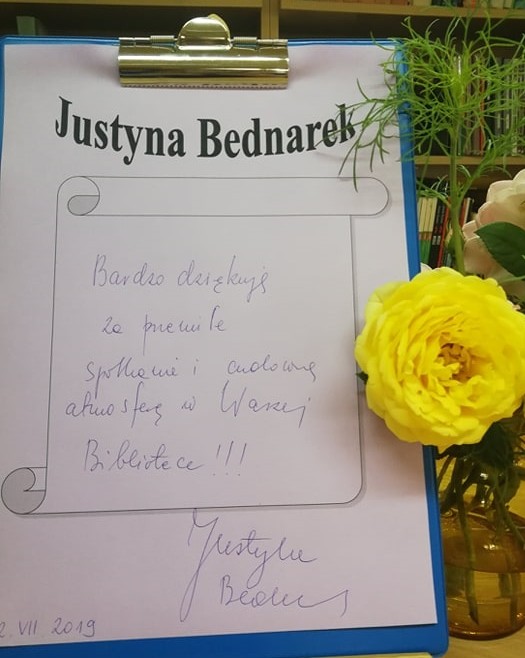 Justyna Bednarek
Bardzo dziękuję
za przemiłe
spotkanie i cudowną
atmosferę w Waszej
Bibliotece!!!
Justyna
Bednarek
2.VII 2019